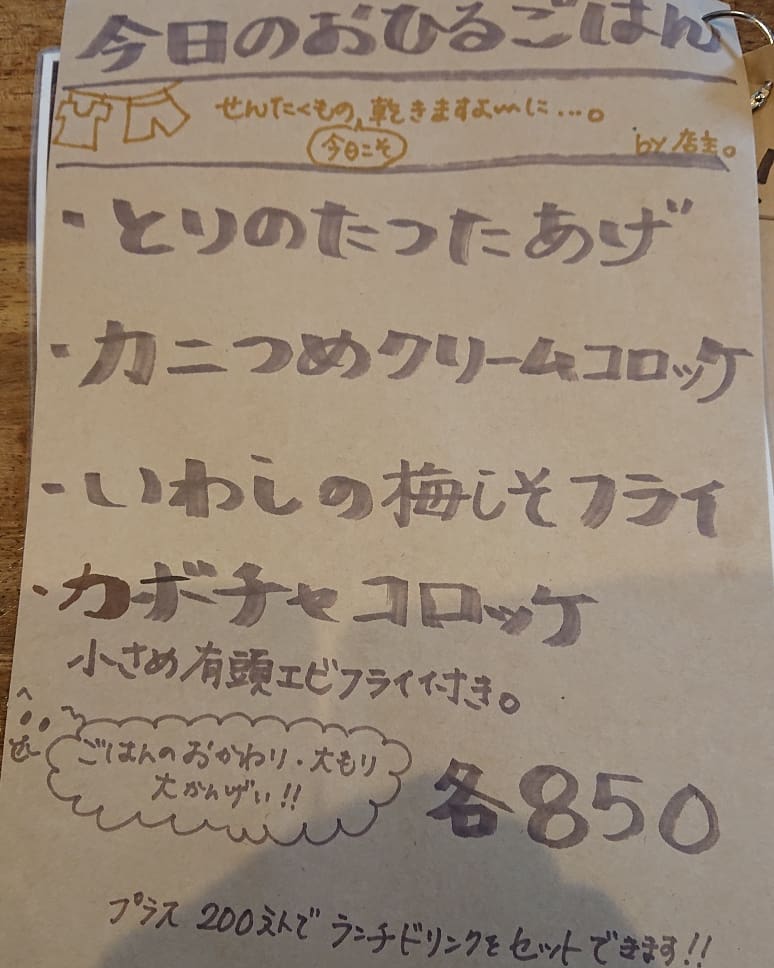 今日のおひるごはん
せんたくもの、乾きますよ〜に...。
今日こそ
by 店主。
・とりのたつたあげ
・カニつめクリームコロッケ
・いわしの梅しそフライ
・カボチャコロッケ
小さめ有頭エビフライ付き。
ごはんのおかわり・大もり
大かんげい!!
各850
プラス 200えんで ランチドリンクを セットできます!!